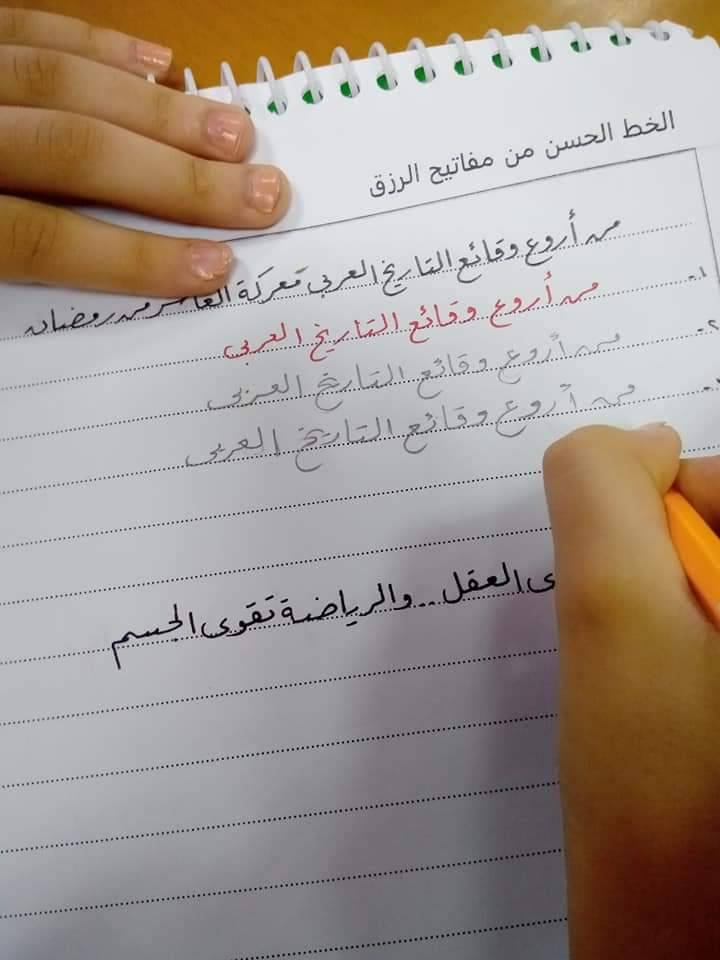 الخط الحسن من مفاتيح الرزق
من أروع وقائع التاريخ العربي معركة العاشر من رمضان
١- من أروع وقائع التاريخ العربي
٢- من أروع وقائع التاريخ العربى
من أروع وقائع التاريخ العربى
العقل .. والرياضة تقوى الجسم